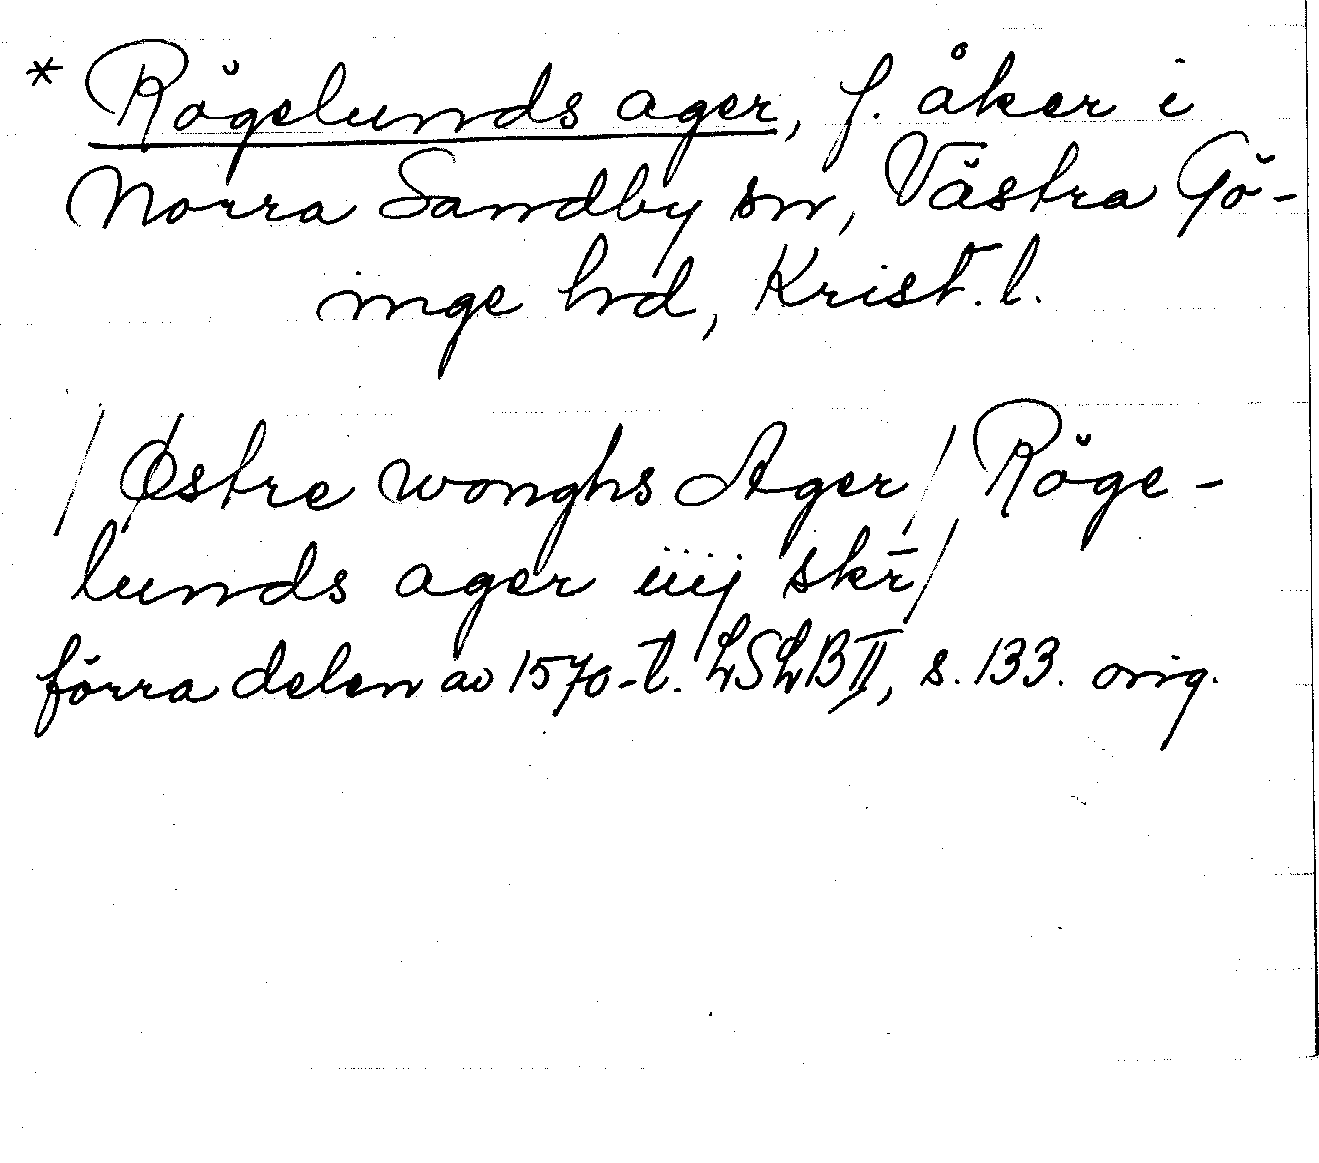 * Rögelunds ager, f. åker i
Norra Sandby sn, Västra Gö-
inge hd, Krist. l.
/Østre wonghs Ager/ Röge-
lunds ager iiij skr̄/
förra delen av 1570-t. LSLB II, s. 133. orig.